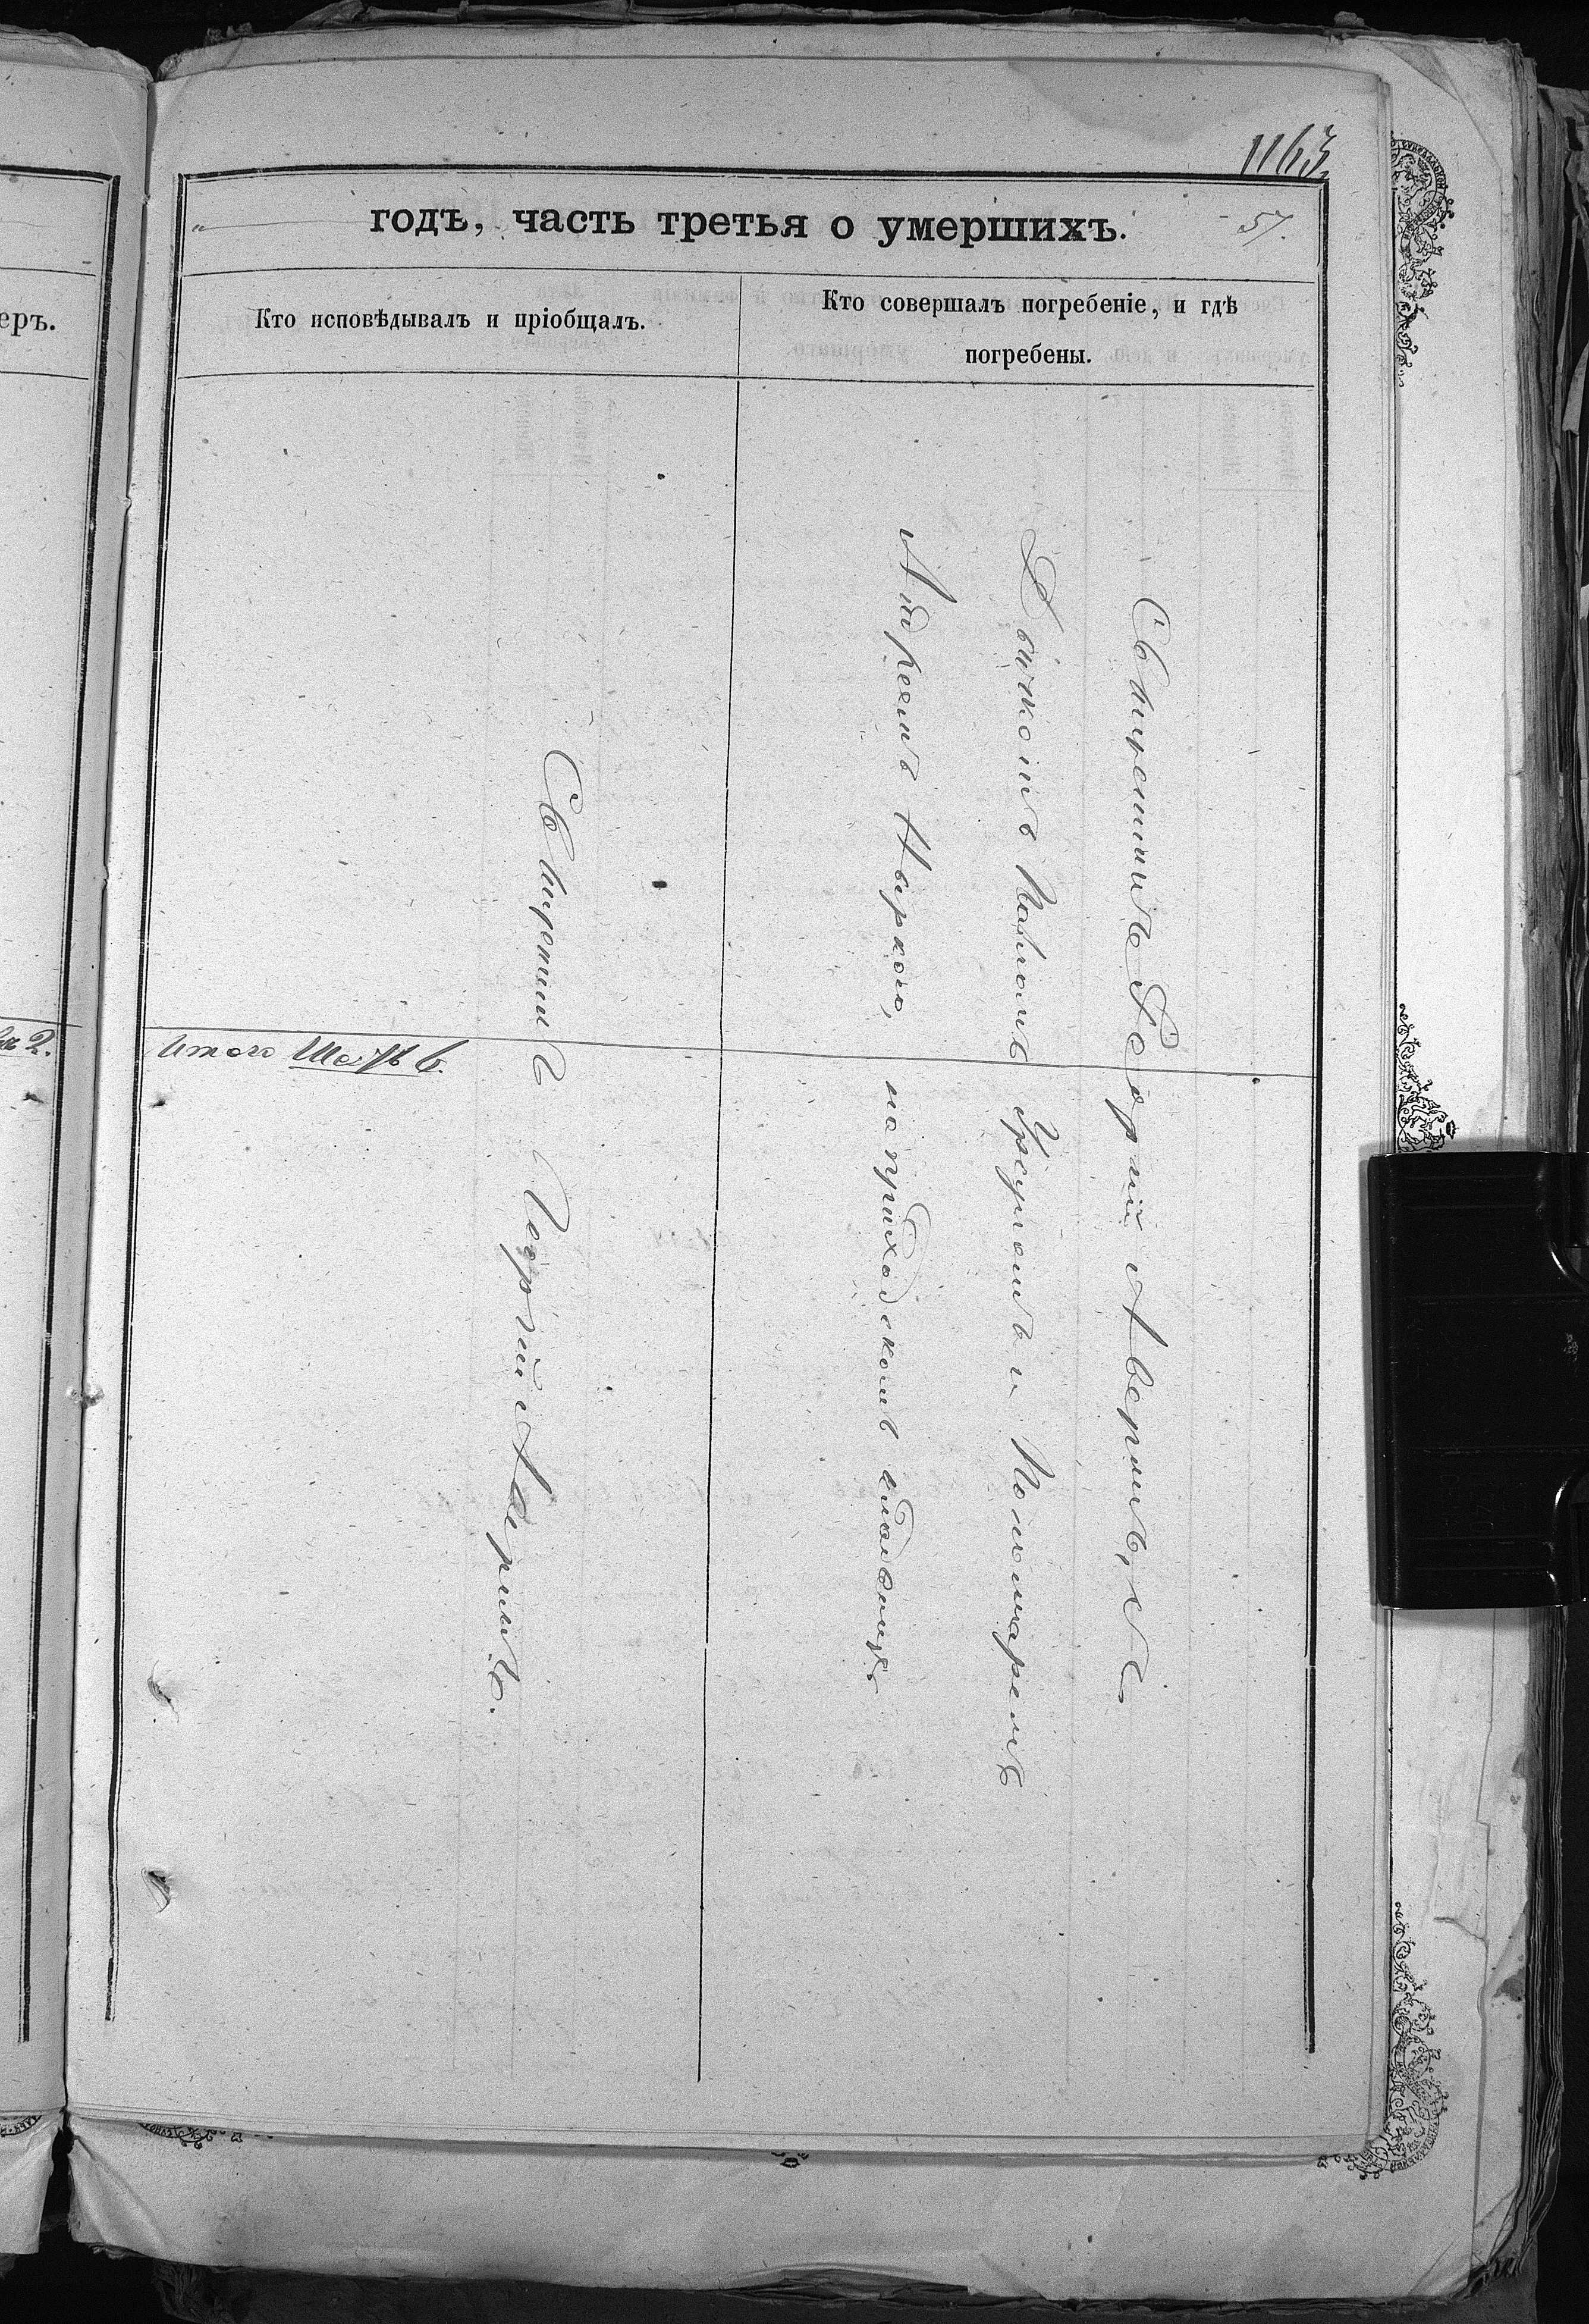 1163.
годъ, часть третья о умершихъ.
57.
Кто исповѣдывалъ и пріобщалъ.
Кто совершалъ погребеніе, и гдѣ
погребены.
еръ.
2.
Итого Шесть 6.
Священникъ Георгій Аверинъ.
Священникъ Георгій Аверинъ, съ
Дьячкомъ Павломъ и Пономаремъ
Андреемъ на приходскомъ кладбищѣ.